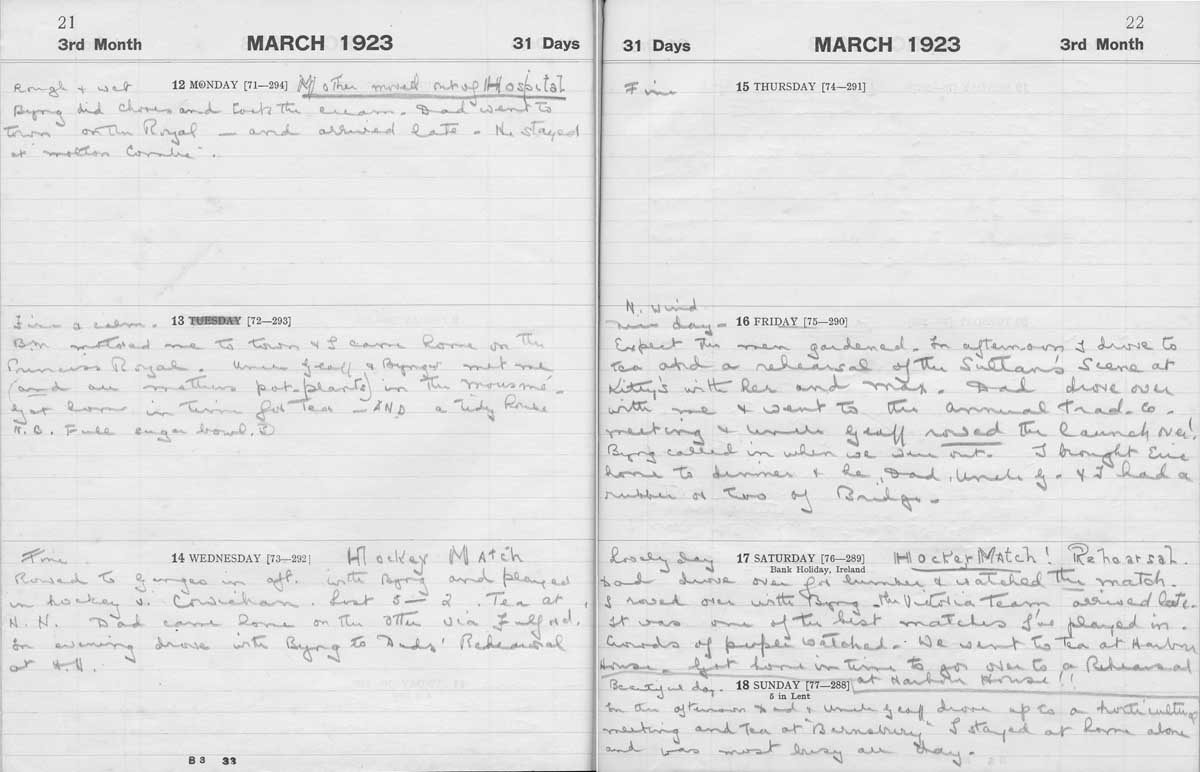 21
3rd Month MARCH 1923 31 Days
Rough & wet 12 MONDAY [71—294] Mother moved out of Hospital
Byng did chores and took the cream. Dad went to
town on the Royal — and arrived late. He stayed
at
Fine & calm. 13 TUESDAY [72—293]
motored me to town & I came home on the
Princess Royal. Uncle Geoff & Byng met me
(and all mothers pot-plants) in the mousmé.
got home in time for Tea — AND a tidy house
N.B. Full sugar bowl.
Fine 14 WEDNESDAY [73—292] Hockey Match
Rowed to Ganges in aft. with Byng and played
in hockey v. Cowichan. Lost 5—2. Tea at
H.H. Dad came home on the Otter via Fulford.
In evening drove with Byng to Rehearsal
at H.H.
B 3 33
22
31 Days MARCH 1923 3rd Month
Fine 15 THURSDAY [74—291]
N. wind
day— 16 FRIDAY [75—290]
Expect the men gardened. In afternoon I drove to
tea and a rehearsal of the Sultan's Scene at
Kitty's with her and Max. Dad drove over
with me & went to the annual Trad. Co.
meeting & Uncle Geoff rowed the launch over!
Byng called in when we were out. I brought Eric
home to dinner & he, Dad, Uncle G. & I had a
rubber or two of Bridge.
Lovely day 17 SATURDAY [76—289] Hockey Match! Rehearsal.
Bank Holiday, Ireland
Dad drove over for lumber & watched the match.
I rowed over with Byng. The Victoria Team arrived late.
It was one of the best matches I've played in.
Crowds of people watched. We went to Tea at Harbour
House. Got home in time to go over to a Rehearsal
at Harbour House!!
Beautiful day. 18 SUNDAY [77—288]
5 in Lent
In the afternoon Dad & Uncle Geoff drove up to a horticulture
meeting and Tea at "Barnsbury" I stayed at home alone
and was most busy all day.